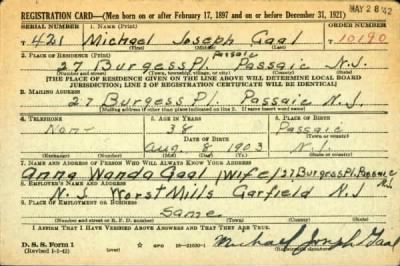 REGISTRATION CARD—(Men born on or after February 17, 1897 and on or before December 31, 1921)
MAY 28 '42
SERIAL NUMBER 1. NAME (Print) ORDER NUMBER
T 421 Michael Joseph Gaal T 10190
(First) (Middle) (Last)
2. PLACE OF RESIDENCE (Print)
27 Burgess Pl. Passaic Passaic N.J.
(Number and street) (Town, township, village, or city) (County) (State)
[THE PLACE OF RESIDENCE GIVEN ON THE LINE ABOVE WILL DETERMINE LOCAL BOARD
JURISDICTION; LINE 2 OF REGISTRATION CERTIFICATE WILL BE IDENTICAL]
3. MAILING ADDRESS
27 Burgess Pl. Passaic N.J.
[Mailing address if other than place indicated on line 2. If same insert word same]
4. TELEPHONE 5. AGE IN YEARS 6. PLACE OF BIRTH
None 38 Passaic
DATE OF BIRTH
Aug. 8 1903 N.J.
7. NAME AND ADDRESS OF PERSON WHO WILL ALWAYS KNOW YOUR ADDRESS
Anna Wanda Gaal (wife) 27 Burgess Pl. Passaic N.J.
8. EMPLOYER'S NAME AND ADDRESS
N. J. Worst Mills Garfield N.J.
9. PLACE OF EMPLOYMENT OR BUSINESS
Same
(Number and street or R. F. D. number) (Town) (County) (State)
I AFFIRM THAT I HAVE VERIFIED ABOVE ANSWERS AND THAT THEY ARE TRUE.
D. S. S. Form 1
(Revised 1-1-42)
Michael Joseph Gaal